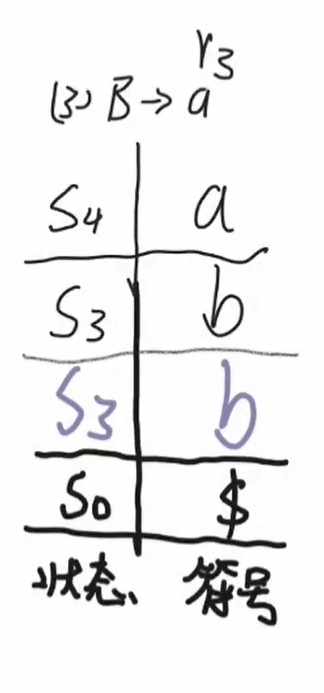 r3
(3) B → a
S4 a
S3 b
S3 b
S0 $
状态 符号